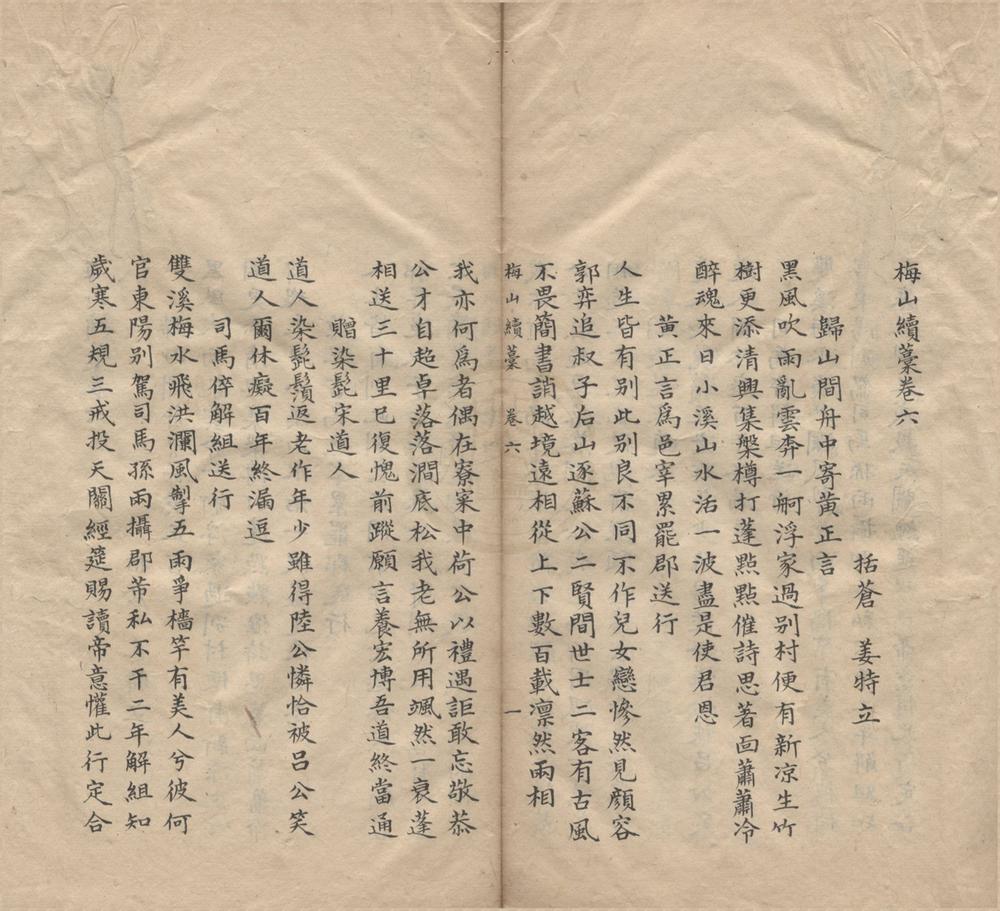 梅山續藁卷六
括蒼　姜特立
歸山間舟中寄黃正言
黑風吹雨亂雲奔一舸浮家過別村便有新凉生竹
樹更添清興集槃樽打蓬點點催詩思著面蕭蕭冷
醉魂來日小溪山水活一波盡是使君恩
黃正言爲邑宰累罷郡送行
人生皆有別此別良不同不作兒女戀慘然見顔容
郭弈追叔子后山逐蘇公二賢間世士二客有古風
不畏簡書誚越境遠相從上下數百載凛然兩相
梅山續藁　卷六　一
我亦何爲者偶在寮寀中荷公以禮遇詎敢忘敬恭
公才自超卓落落澗底松我老無所用颯然一衰蓬
相送三十里已復愧前蹤願言養宏博吾道終當通
贈染髭宋道人
道人染髭鬚返老作年少雖得陸公憐恰被吕公笑
道人爾休癡百年終漏逗
司馬倅解組送行
雙溪梅水飛洪瀾風掣五雨爭檣竿有美人兮彼何
官東陽別駕司馬孫兩攝郡芾私不干二年解組知
歲寒五規三戒投天關經筵賜讀帝意懽此行定合